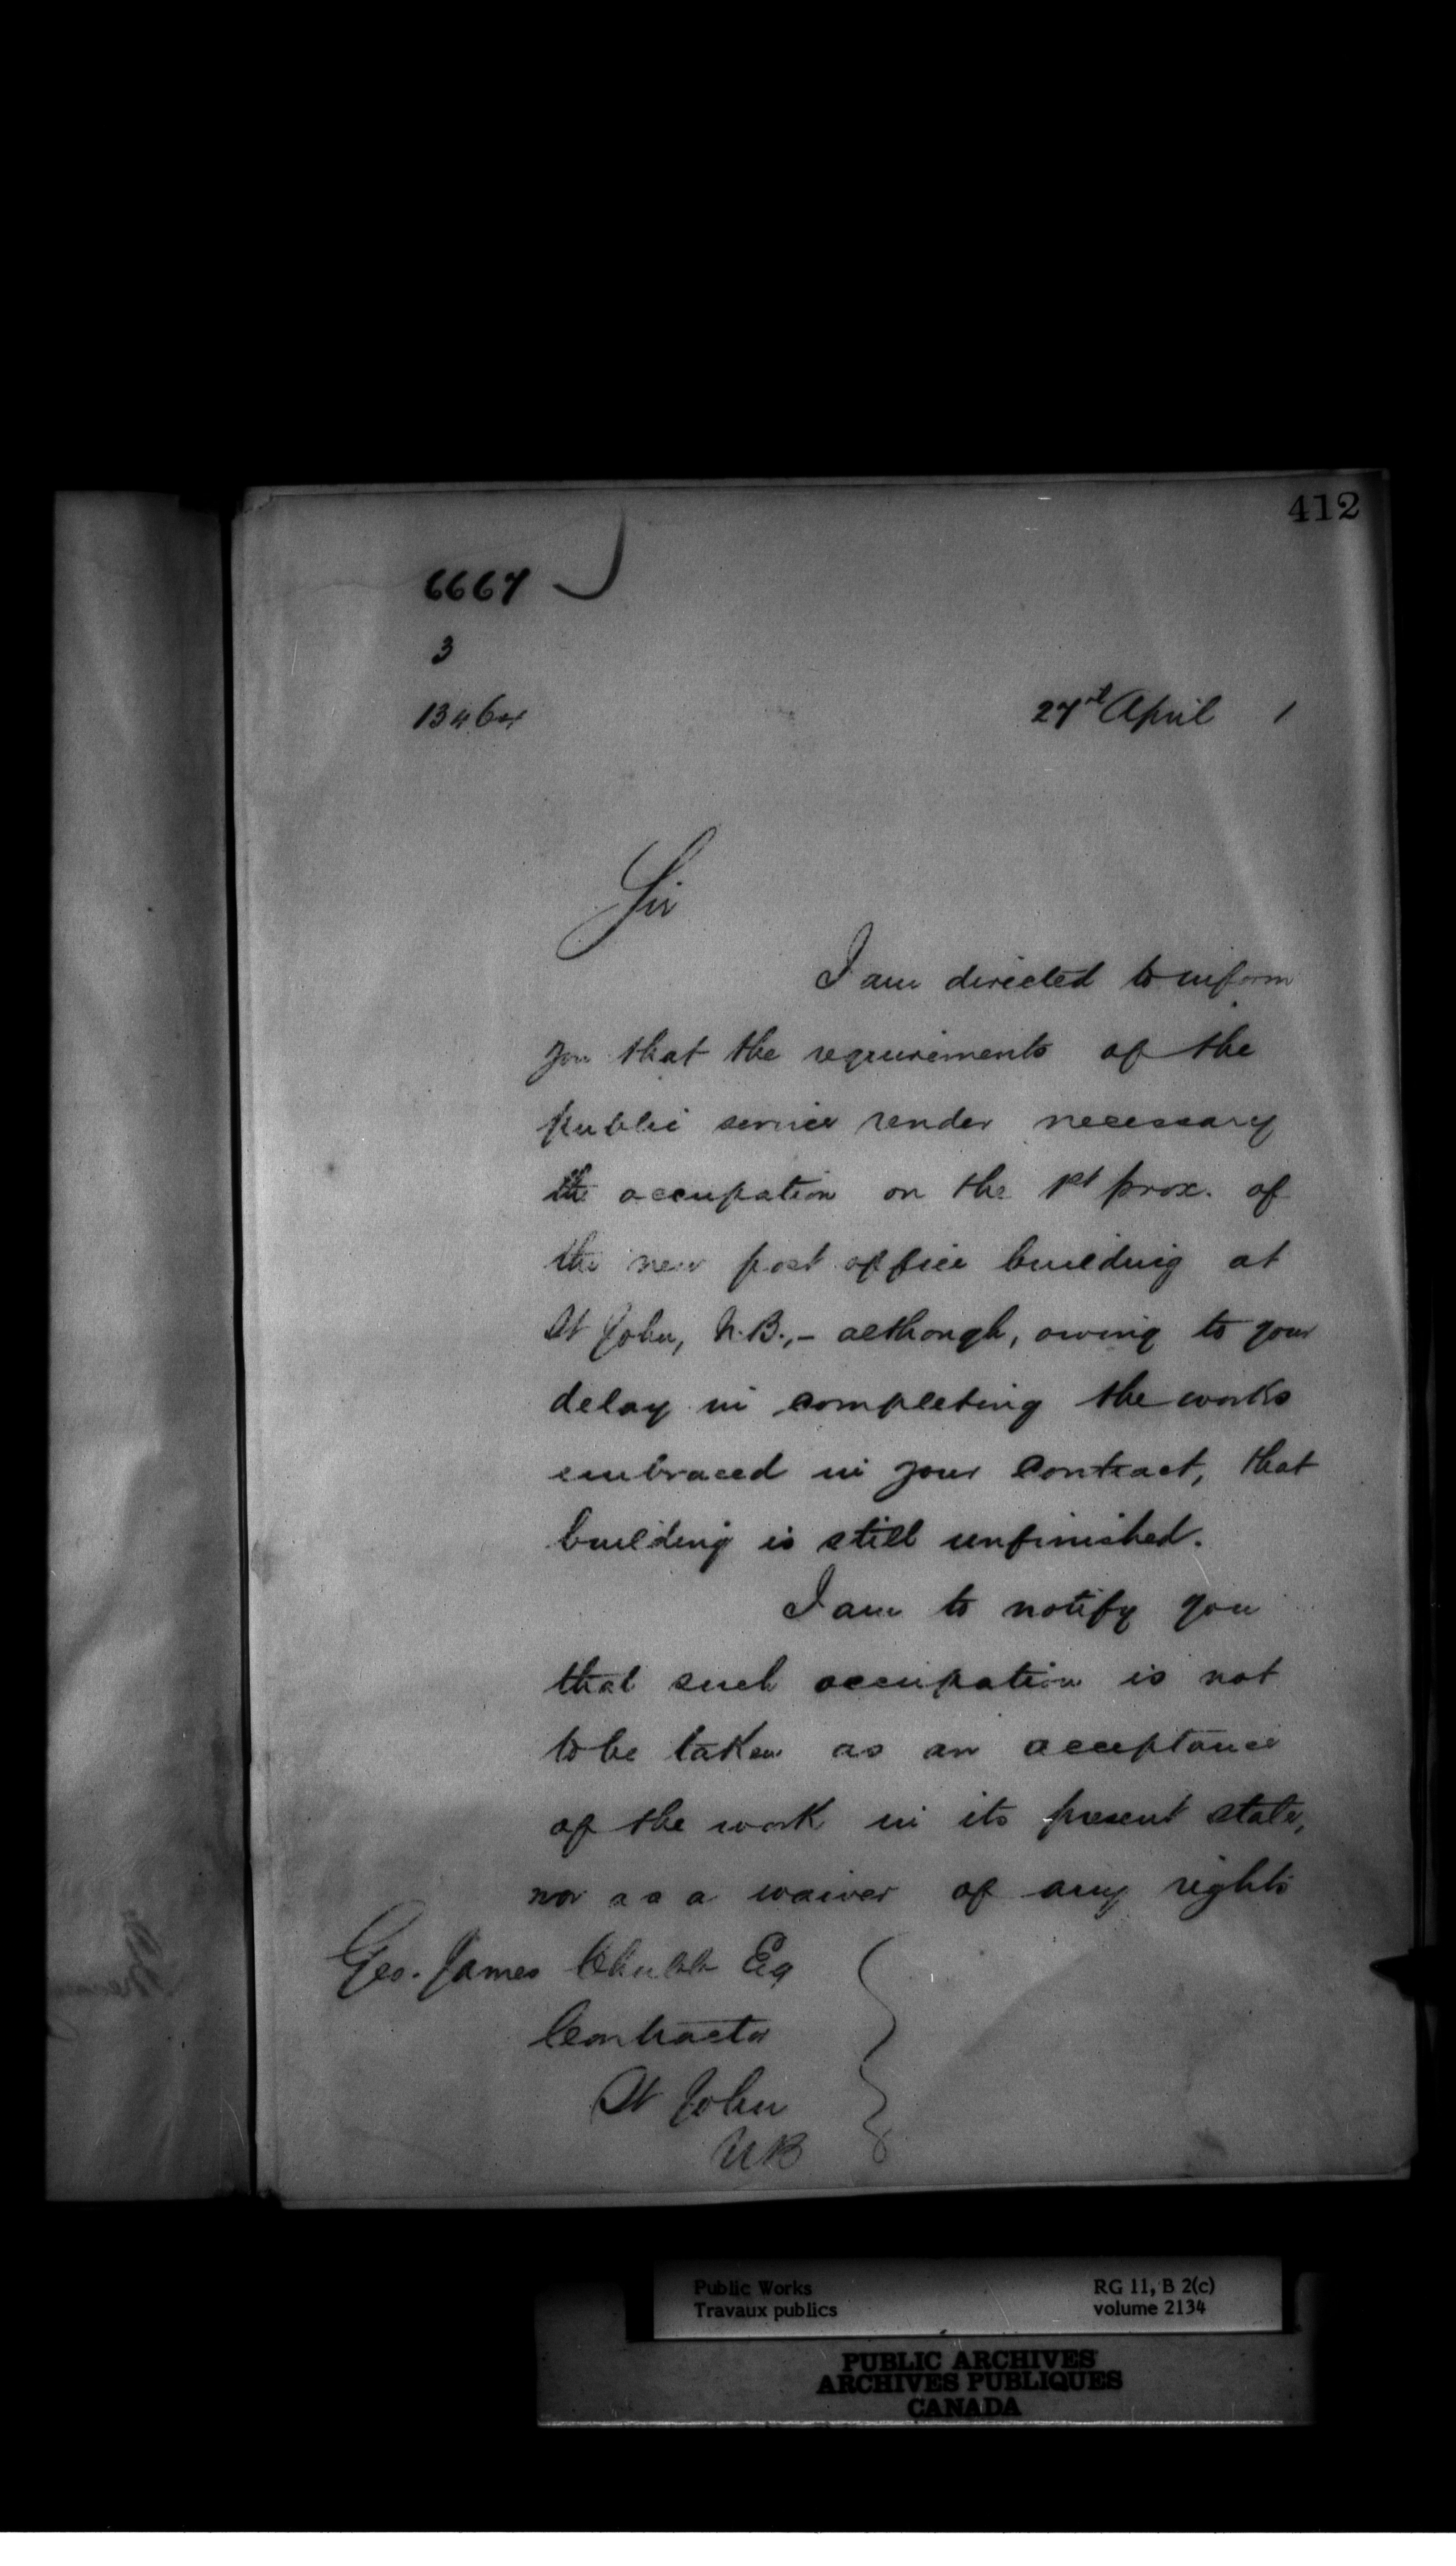 412
6667
3
27 April 1
Sir
I am directed to inform
you that the requirements of the
public service render necessary
the occupation on the 1st prox. of
the new post office building at
St John, N.B.,- although, owing to your
delay in completing the works
embraced in your Contract, that
building is still unfinished.
I am to notify you
that such occupation is not
to be taken as an acceptance
of the work in its present state,
nor as a waiver of any rights
Geo. James Chubb Esq
Contractor
St John
NB
Public Works
Travaux publics
RG 11, B 2(c)
volume 2134
PUBLIC ARCHIVES
ARCHIVES PUBLIQUES
CANADA